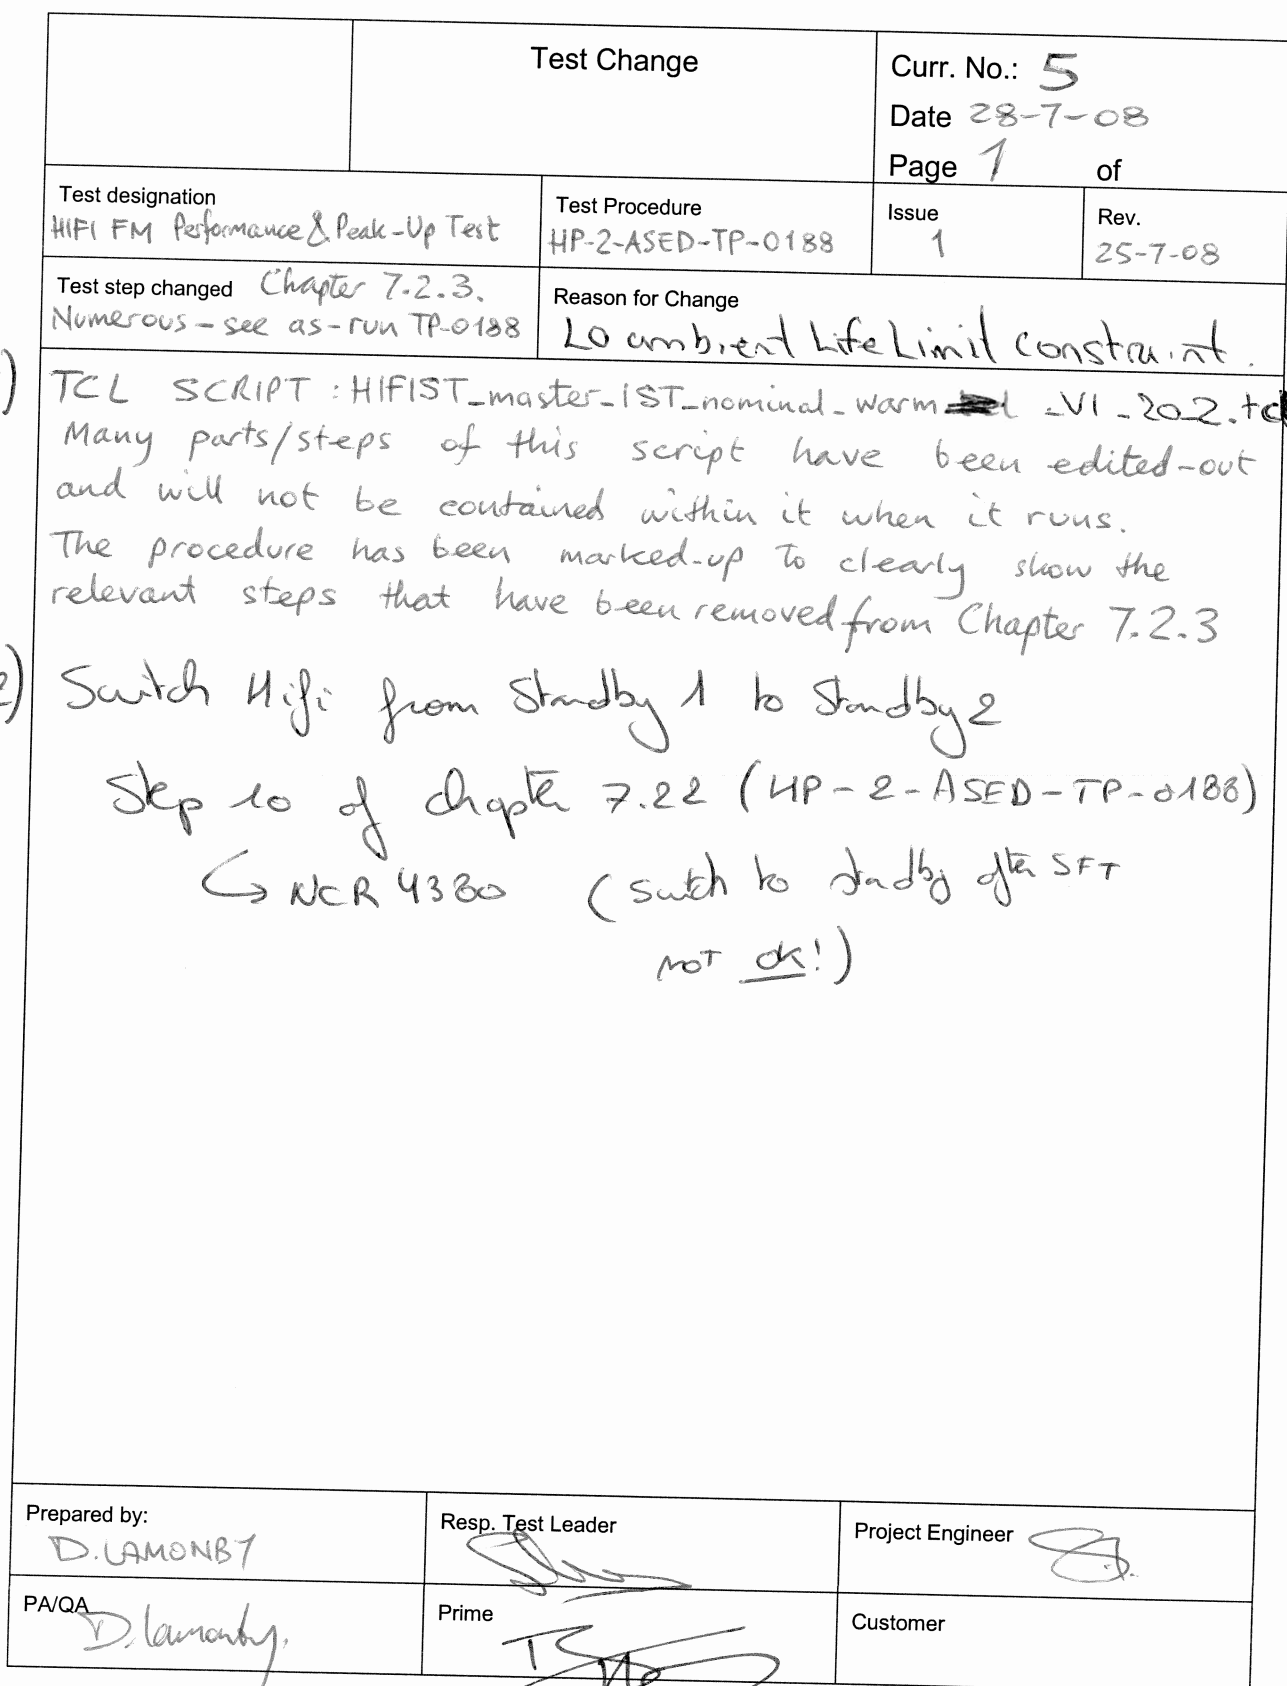 Test Change
Curr. No.: 5
Date 28-7-08
Page 1 of
Test designation
HIFI FM Performance & Peak-Up Test
Test Procedure
HP-2-ASED-TP-0188
Issue
1
Rev.
25-7-08
Test step changed Chapter 7.2.3.
Numerous - see as-run TP-0188
Reason for Change
LO ambient Life Limit constraint.
) TCL SCRIPT : HIFIST_master_IST_nominal_warm _V1_202.tcl
Many parts/steps of this script have been edited-out
and will not be contained within it when it runs.
The procedure has been marked-up to clearly show the
relevant steps that have been removed from Chapter 7.2.3
2) Switch Hifi from Standby 1 to Standby 2
Step 10 of chapter 7.22 (HP-2-ASED-TP-0188)
↳ NCR 4380 (Switch to standby after SFT
not ok!)
Prepared by:
D. LAMONBY
Resp. Test Leader
Project Engineer
PA/QA
D. Lamonby.
Prime
Customer